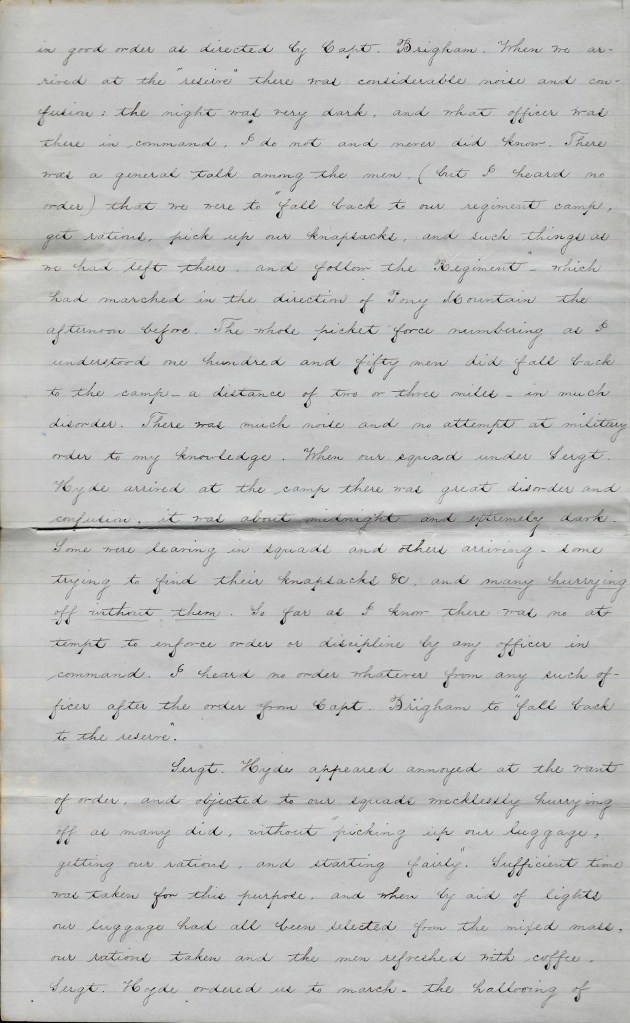 in good order as directed by Capt. Brigham. When we ar-
rived at the "reserve" there was considerable noise and con-
fusion: the night was very dark, and what officer was
there in command, I do not and never did know. There
was a general talk among the men, (but I heard no
order) that we were to "fall back to our regiment camp,
get rations, pick up our knapsacks, and such things as
we had left there, and follow the Regiment" - which
had marched in the direction of Pony Mountain the
afternoon before. The whole picket force numbering as I
understood one hundred and fifty men did fall back
to the camp - a distance of two or three miles - in much
disorder. There was much noise and no attempt at military
order to my knowledge. When our squad under Sergt.
Hyde arrived at the camp there was great disorder and
confusion, it was about midnight and extremely dark.
Some were leaving in squads and others arriving - some
trying to find their knapsacks &c, and many hurrying
off without them. So far as I know there was no at-
tempt to enforce order or discipline by any officer in
command. I heard no order whatever from any such of-
ficer after the order from Capt. Brigham to "fall back
to the reserve".
Sergt. Hyde appeared annoyed at the want
of order, and objected to our squads wrecklessly hurrying
off as many did, without "picking up our luggage,
getting our rations, and starting fairly". Sufficient time
was taken for this purpose, and when by aid of lights
our luggage had all been selected from the mixed mass,
our rations taken and the men refreshed with coffee,
Sergt. Hyde ordered us to march - the hallooing of